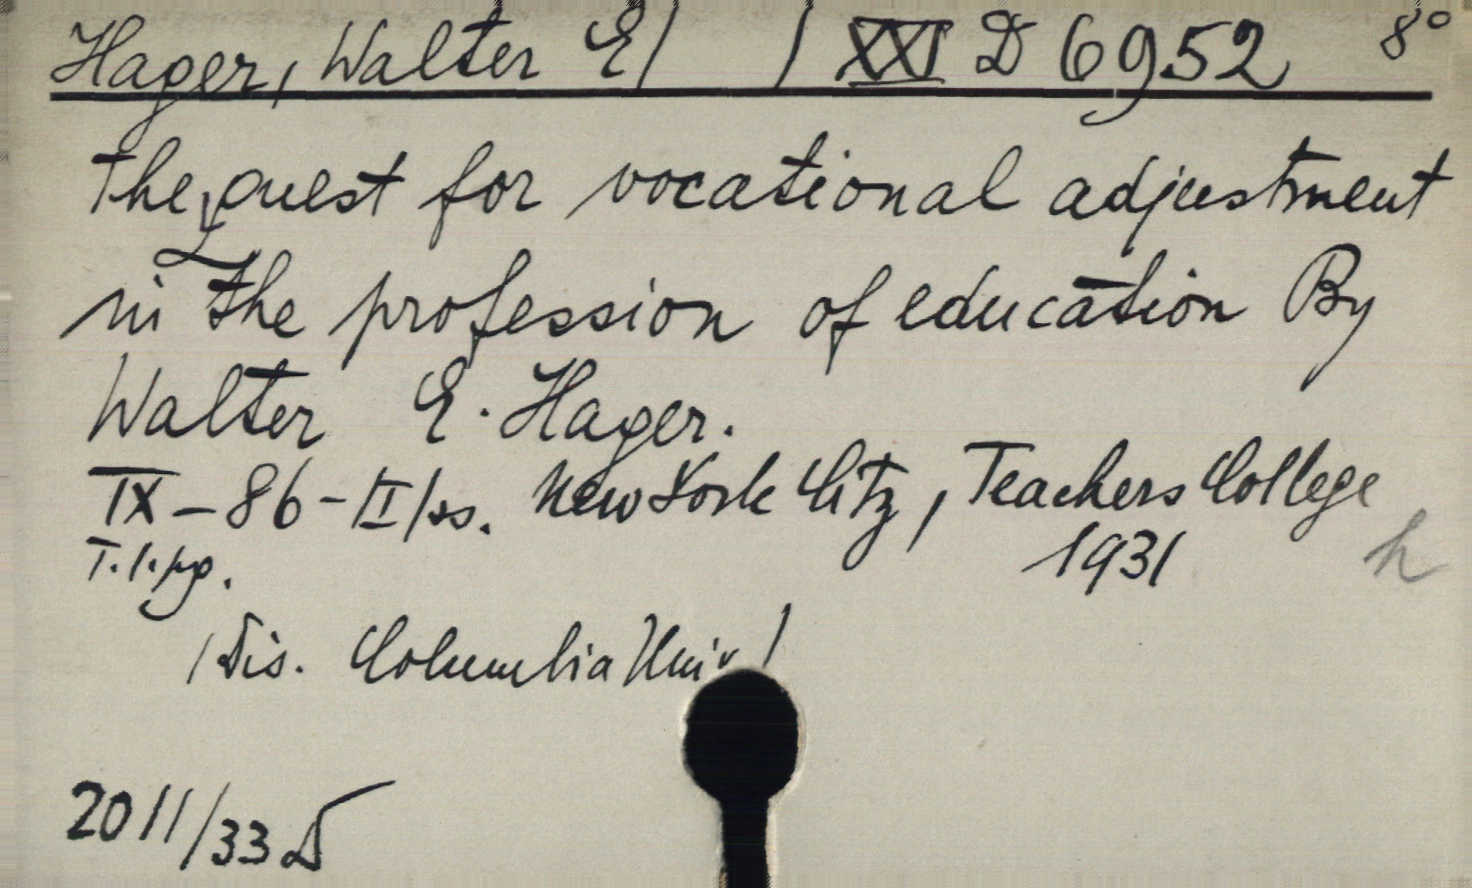 Hager, Walter E/ / XXI D 6952 8°
The quest for vocational adjustment
in the profession of education By
Walter E. Hager.
IX-86-II/ss. New York City, Teachers College
T. l. pg. 1931 h
/Dis. Columbia Univ/
2011/33 D